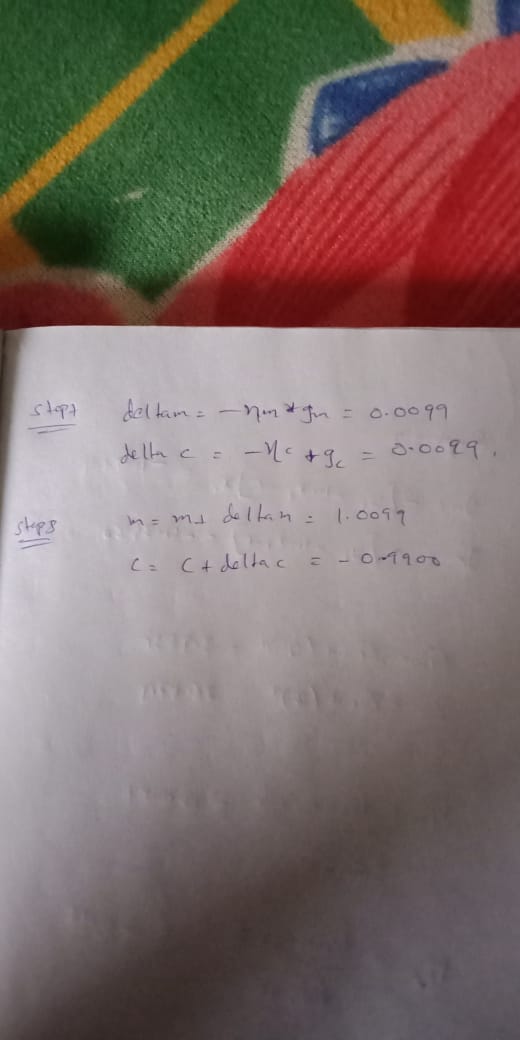 step7 deltam = -ηm * gm = 0.0099
delta c = -ηc * gc = 0.0099.
step8 m = m + deltam = 1.0099
c = c + delta c = - 0.9900